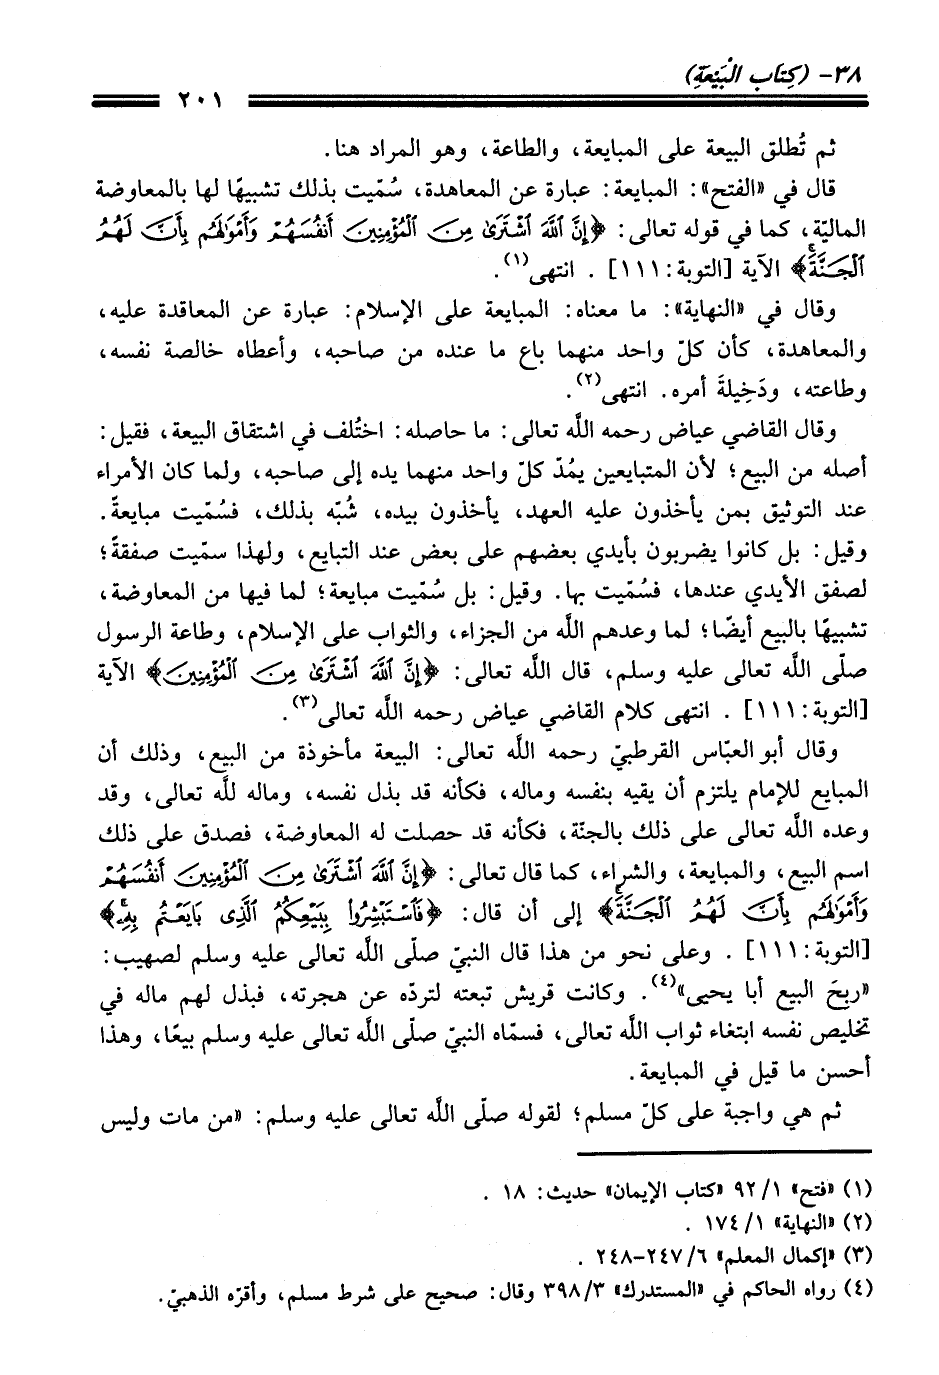 ٣٨- (كِتَاب الْبَيْعَةِ)
٢٠١
ثم تُطلق البيعة على المبايعة، والطاعة، وهو المراد هنا.
قال في «الفتح»: المبايعة: عبارة عن المعاهدة، سُمّيت بذلك تشبيهًا لها بالمعاوضة
الماليّة، كما في قوله تعالى: ﴿إِنَّ ٱللَّهَ ٱشْتَرَىٰ مِنَ ٱلْمُؤْمِنِينَ أَنفُسَهُمْ وَأَمْوَٰلَهُم بِأَنَّ لَهُمُ
ٱلْجَنَّةَۚ﴾ الآية [التوبة: ١١١] . انتهى(١).
وقال في «النهاية»: ما معناه: المبايعة على الإسلام: عبارة عن المعاقدة عليه،
والمعاهدة، كأن كلّ واحد منهما باع ما عنده من صاحبه، وأعطاه خالصة نفسه،
وطاعته، ودَخِيلةَ أمره. انتهى(٢).
وقال القاضي عياض رحمه اللَّه تعالى: ما حاصله: اختُلف في اشتقاق البيعة، فقيل:
أصله من البيع؛ لأن المتبايعين يمُدّ كلّ واحد منهما يده إلى صاحبه، ولما كان الأمراء
عند التوثيق بمن يأخذون عليه العهد، يأخذون بيده، شُبّه بذلك، فسُمّيت مبايعةً.
وقيل: بل كانوا يضربون بأيدي بعضهم على بعض عند التبايع، ولهذا سمّيت صفقةً؛
لصفق الأيدي عندها، فسُمّيت بها. وقيل: بل سُمّيت مبايعة؛ لما فيها من المعاوضة،
تشبيهًا بالبيع أيضًا؛ لما وعدهم اللَّه من الجزاء، والثواب على الإسلام، وطاعة الرسول
صلّى اللَّه تعالى عليه وسلم، قال اللَّه تعالى: ﴿إِنَّ ٱللَّهَ ٱشْتَرَىٰ مِنَ ٱلْمُؤْمِنِينَ﴾ الآية
[التوبة: ١١١] . انتهى كلام القاضي عياض رحمه اللَّه تعالى(٣).
وقال أبو العبّاس القرطبيّ رحمه اللَّه تعالى: البيعة مأخوذة من البيع، وذلك أن
المبايع للإمام يلتزم أن يقيه بنفسه وماله، فكأنه قد بذل نفسه، وماله للَّه تعالى، وقد
وعده اللَّه تعالى على ذلك بالجنّة، فكأنه قد حصلت له المعاوضة، فصدق على ذلك
اسم البيع، والمبايعة، والشراء، كما قال تعالى: ﴿إِنَّ ٱللَّهَ ٱشْتَرَىٰ مِنَ ٱلْمُؤْمِنِينَ أَنفُسَهُمْ
وَأَمْوَٰلَهُم بِأَنَّ لَهُمُ ٱلْجَنَّةَۚ﴾ إلى أن قال: ﴿فَٱسْتَبْشِرُوا۟ بِبَيْعِكُمُ ٱلَّذِى بَايَعْتُم بِهِۦۚ﴾
[التوبة: ١١١] . وعلى نحو من هذا قال النبيّ صلّى اللَّه تعالى عليه وسلم لصهيب:
«ربحَ البيع أبا يحيى»(٤). وكانت قريش تبعته لتردّه عن هجرته، فبذل لهم ماله في
تخليص نفسه ابتغاء ثواب اللَّه تعالى، فسمّاه النبيّ صلّى اللَّه تعالى عليه وسلم بيعًا، وهذا
أحسن ما قيل في المبايعة.
ثم هي واجبة على كلّ مسلم؛ لقوله صلّى اللَّه تعالى عليه وسلم: «من مات وليس
(١) «فتح» ١/ ٩٢ «كتاب الإيمان» حديث: ١٨ .
(٢) «النهاية» ١/ ١٧٤ .
(٣) «إكمال المعلم» ٦/ ٢٤٧-٢٤٨ .
(٤) رواه الحاكم في «المستدرك» ٣/ ٣٩٨ وقال: صحيح على شرط مسلم، وأقرّه الذهبيّ.